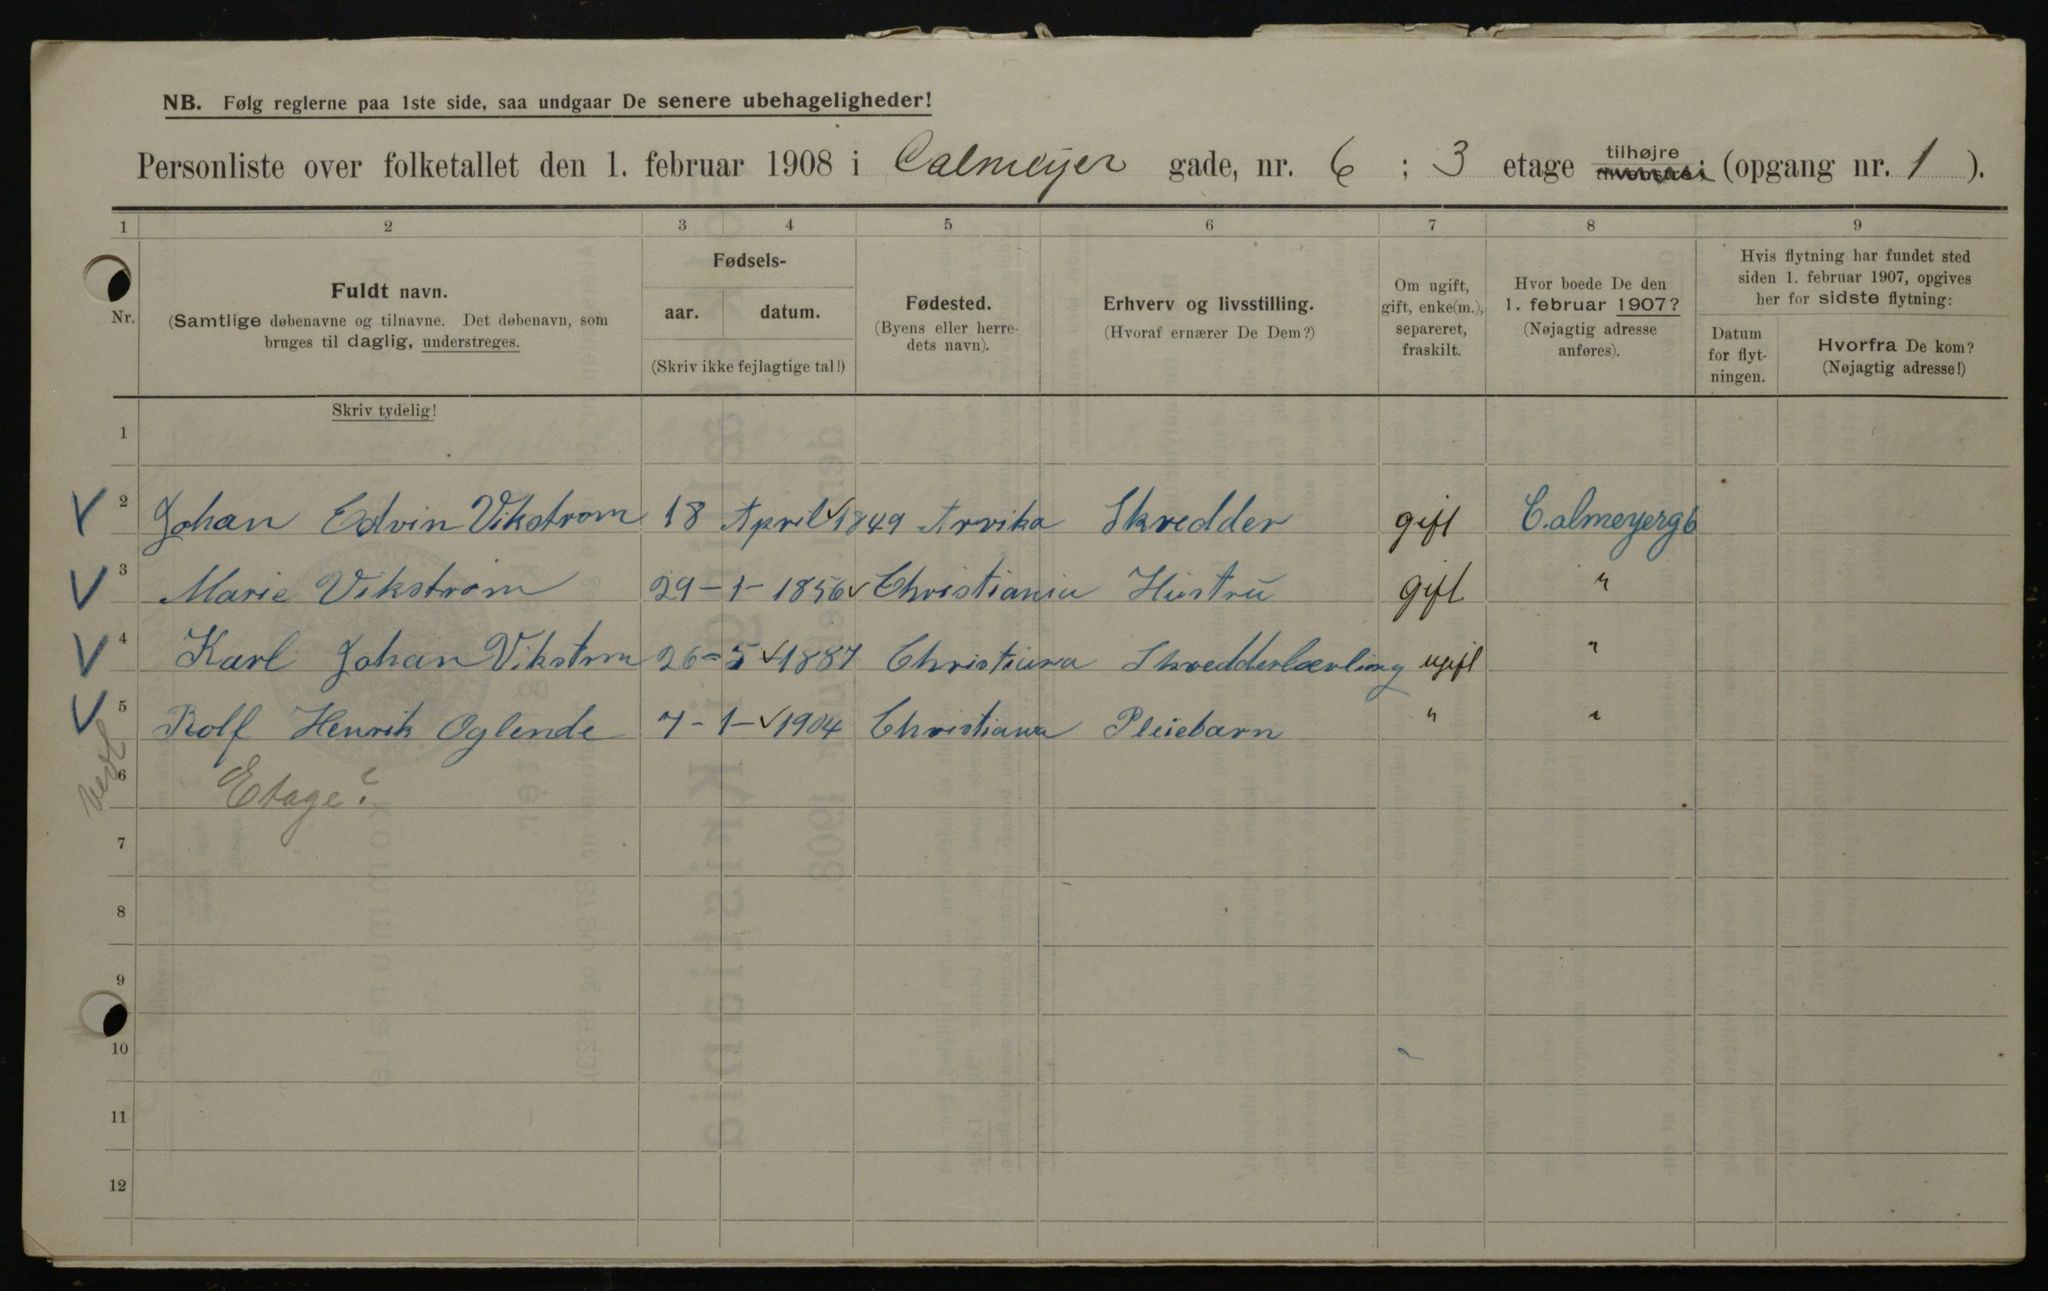 NB. Følg reglerne paa 1ste side, saa undgaar De senere ubehageligheder!
Personliste over folketallet den 1. februar 1908 i Calmeyer gade, nr. 6 ; 3 etage tilhøjre (opgang nr. 1 ).
1 2 3 4 5 6 7 8 9
Nr.
Fuldt navn.
(Samtlige døbenavne og tilnavne. Det døbenavn, som
bruges til daglig, understreges.
Skriv tydelig!
Fødsels-
aar. datum.
(Skriv ikke fejlagtige tal!)
Fødested.
(Byens eller herre-
dets navn).
Erhverv og livsstilling.
(Hvoraf ernærer De Dem?)
Om ugift,
gift, enke(m.),
separeret,
fraskilt.
Hvor boede De den
1. februar 1907?
(Nøjagtig adresse
anføres).
Hvis flytning har fundet sted
siden 1. februar 1907, opgives
her for sidste flytning:
Datum
for flyt-
ningen.
Hvorfra De kom?
(Nøjagtig adresse!)
1
2 Johan Edvin Vikstrom 18 April 1849 Arvika Skredder gift Calmeyerg 6
3 Marie Vikstrom 29-1-1856 Christiania Hustru gift "
4 Karl Johan Vikstrm 26-5 1887 Christiana Skredderlærling ugift "
5 Rolf Henrik Oglende 7-1-1904 Christiana Pleiebarn " "
6 Etage?
7
8
9
10
11
12